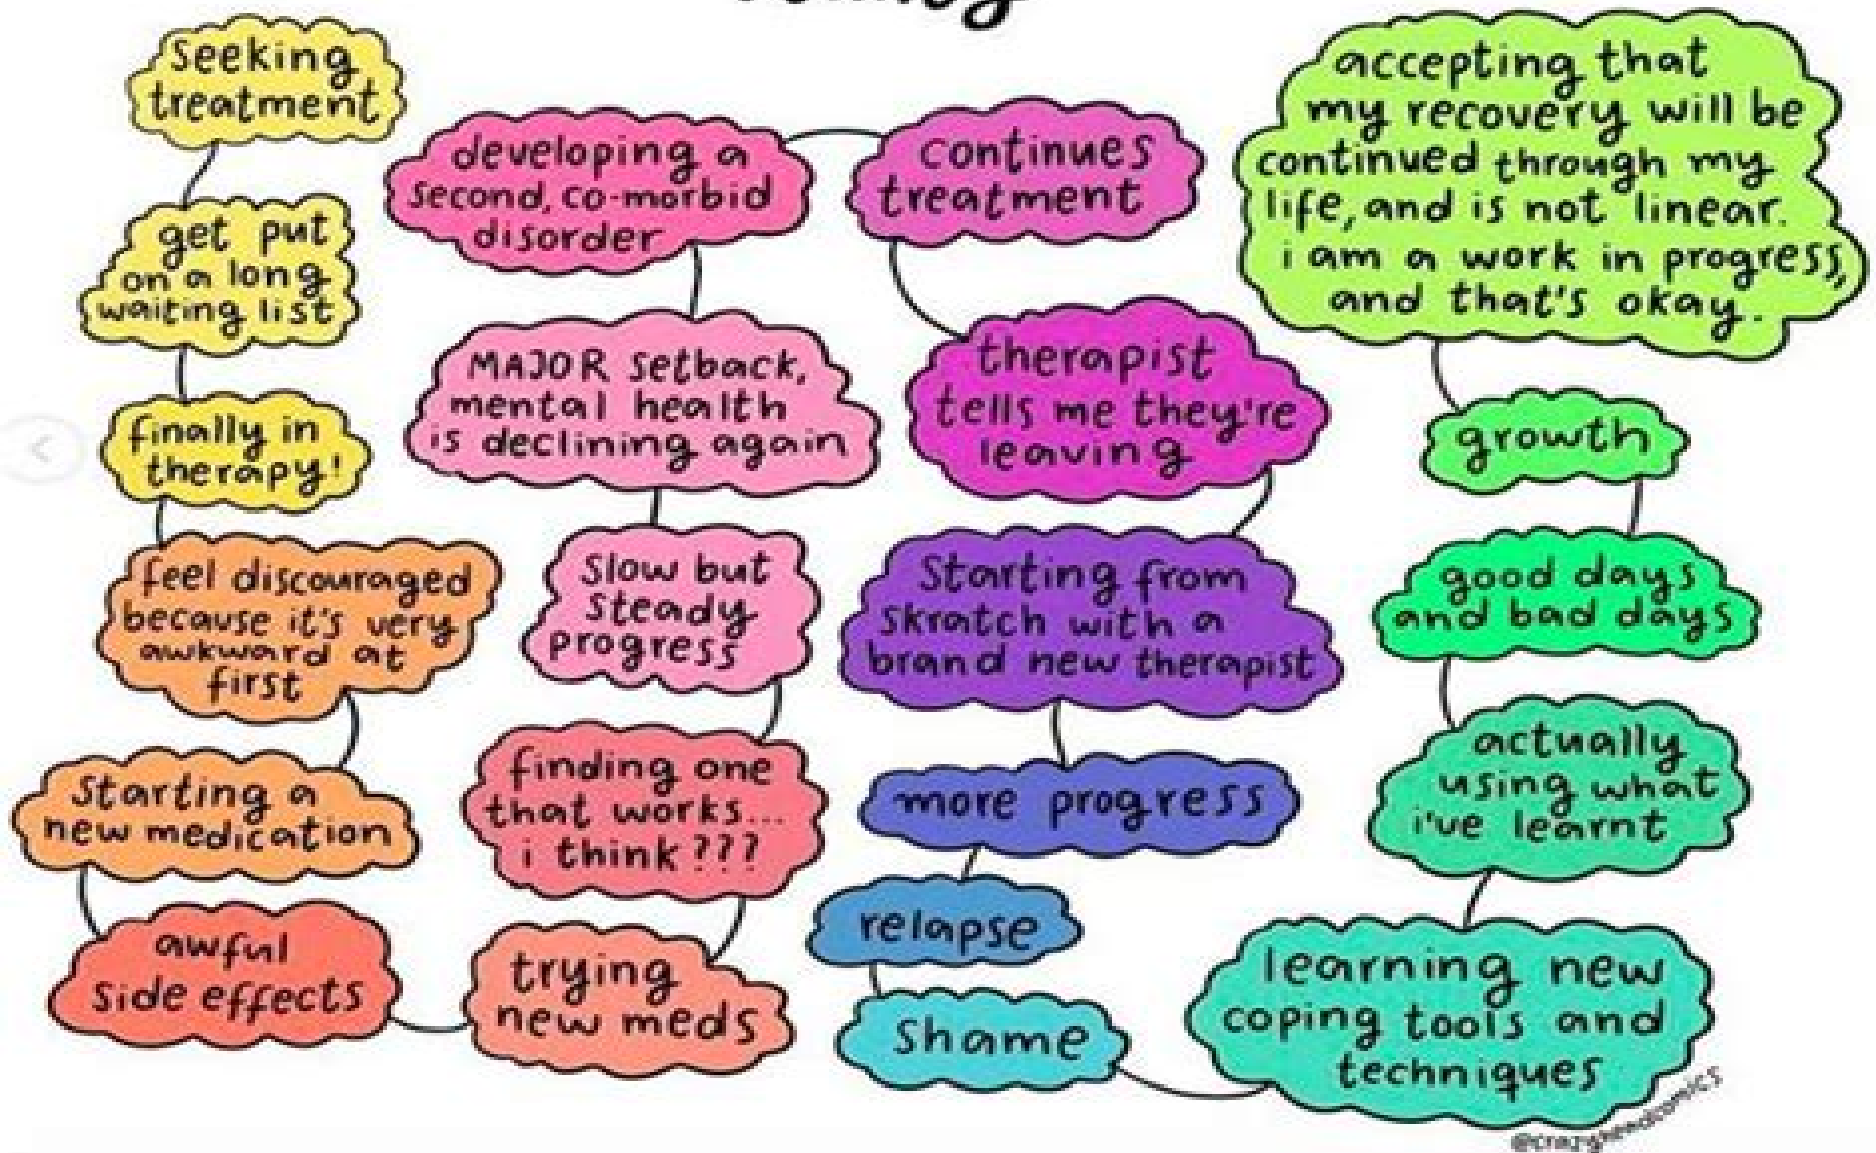 seeking
treatment
get put
on a long
waiting list
finally in
therapy!
feel discouraged
because it's very
awkward at
first
starting a
new medication
awful
side effects
trying
new meds
finding one
that works...
i think???
slow but
steady
progress
MAJOR setback,
mental health
is declining again
developing a
second, co-morbid
disorder
continues
treatment
therapist
tells me they're
leaving
starting from
skratch with a
brand new therapist
more progress
relapse
shame
learning new
coping tools and
techniques
actually
using what
i've learnt
good days
and bad days
growth
accepting that
my recovery will be
continued through my
life, and is not linear.
i am a work in progress,
and that's okay.
@crazyheadcomics